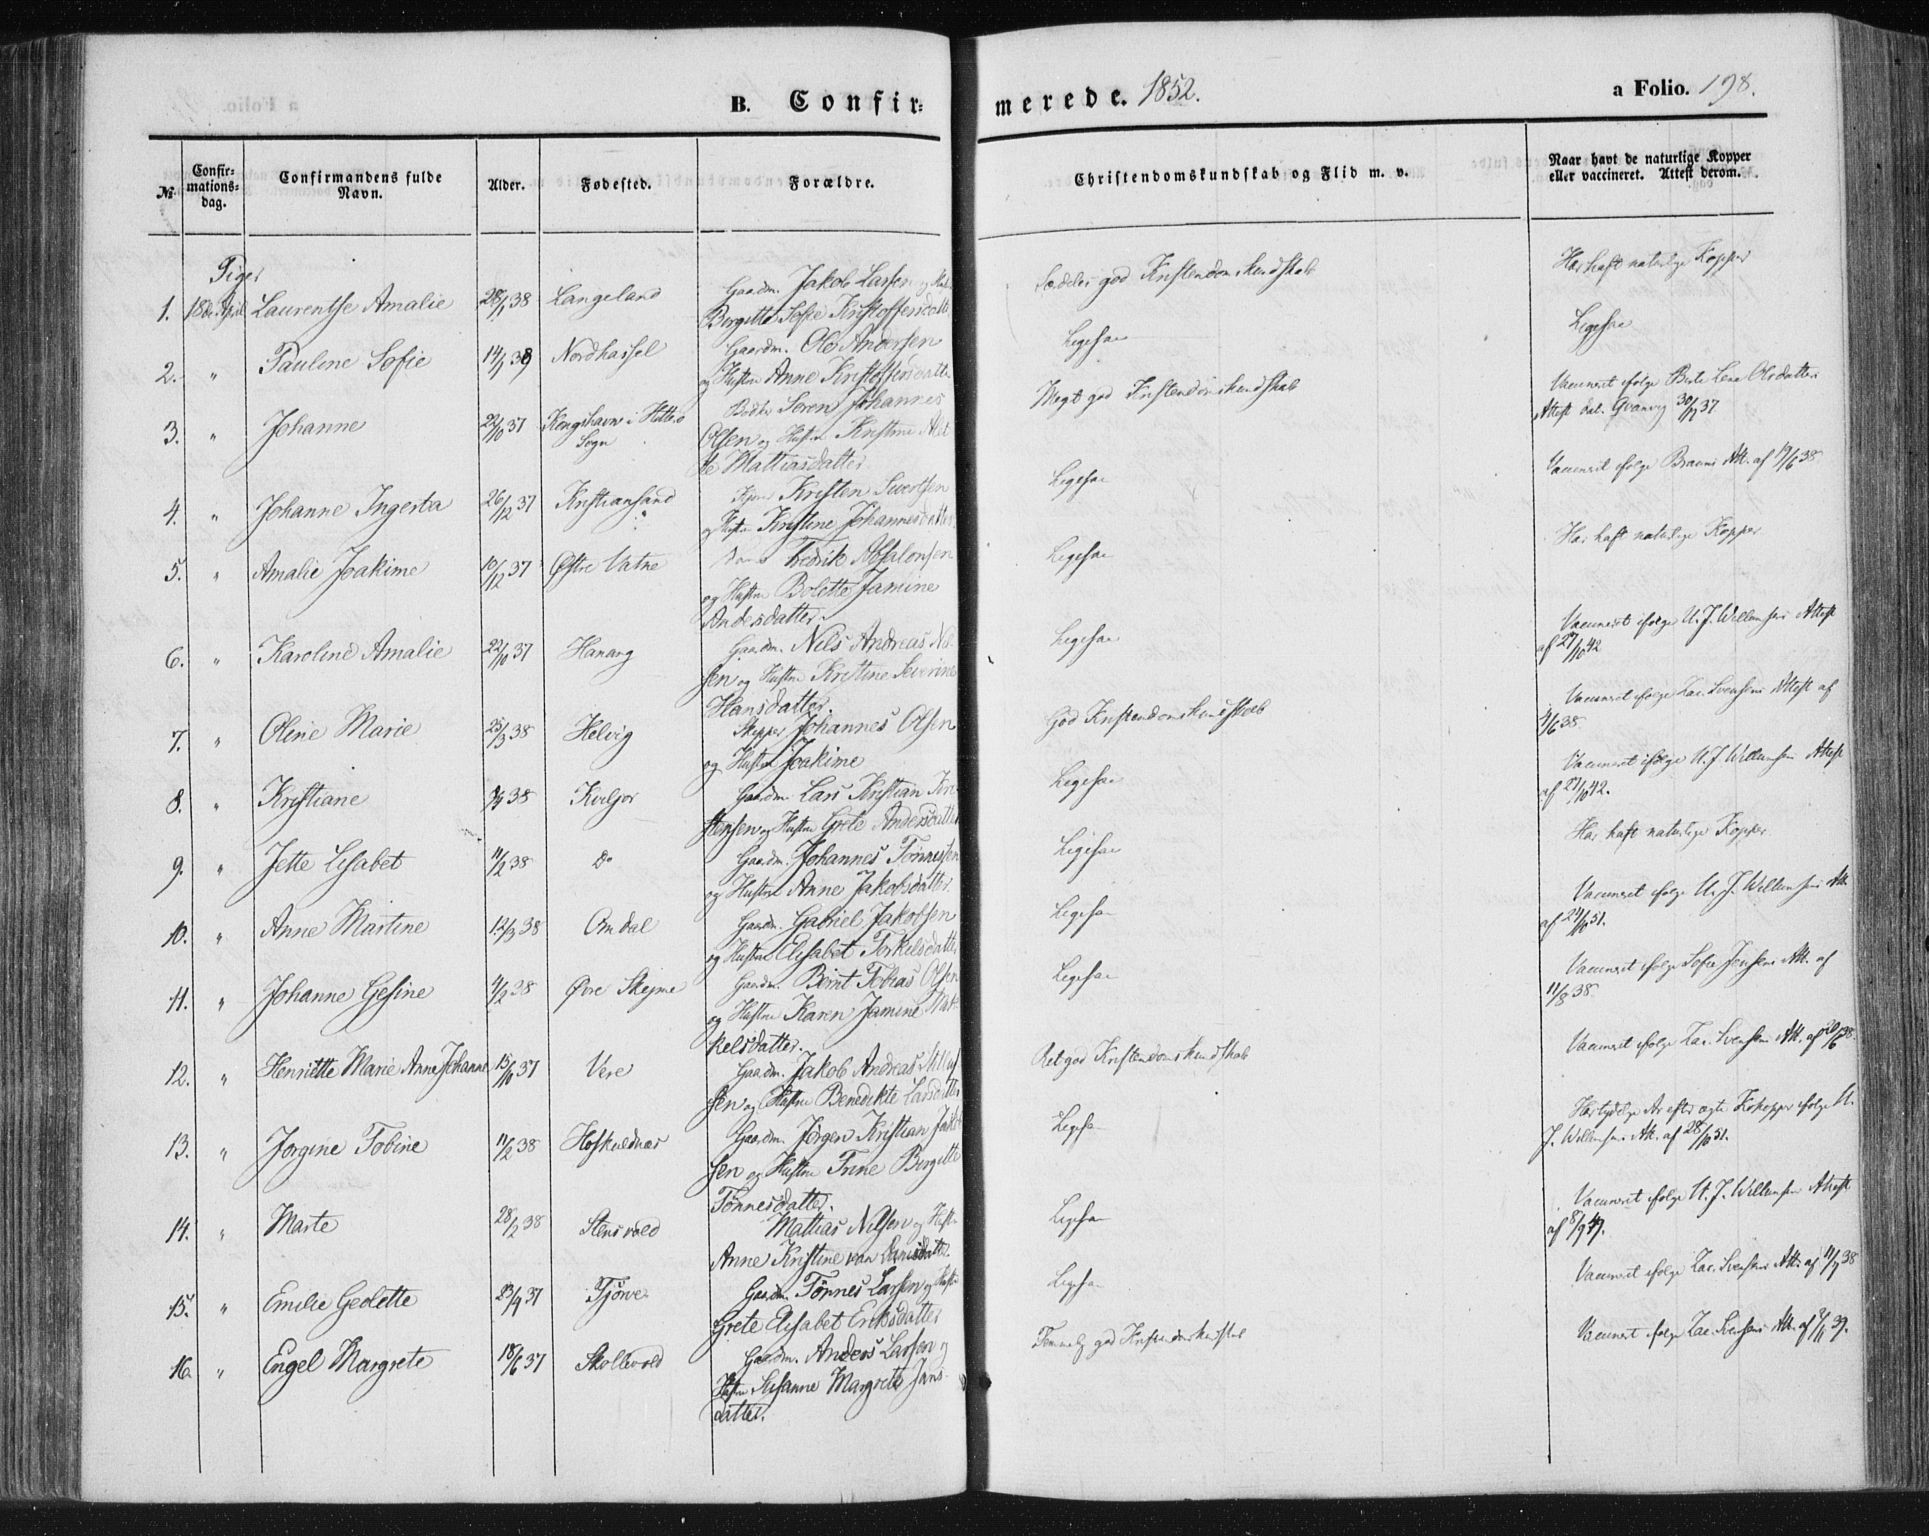 B. Confir-
merede. 1852.
a Folio. 198.
No
Confir-
mations-
dag.
Confirmandens fulde
Navn.
Alder.
Fødested.
Forældre.
Christendomskundskab og Flid m. v.
Naar havt de naturlige Kopper
eller vaccineret. Attest derom.
Piger
1. 18de April Laurentse Amalie 28/1 38 Langeland
Gaardm. Jakob Larsen og
Birgitte Sofie Kristoffersdatt
Særdeles god Kristendomskundskab
Har haft naturlige Kopper
2. " Pauline Sofie 14/1 38 Nordhassel
Gaardm. Ole Andersen
og Hustru Anne Kristoffersdatter
Ligesaa
Ligesaa
3. " Johanne 22/10 37 Kongshavn i Hitterø
Sogn
Søren Johannes
Olsen og Hustru Kristine
Mattiasdatter
Megt god Kristendomskundskab
Vaccineret ifølge Berte Lena Olsdatters
Attest dat. 37
4. " Johanne Ingerta 26/12 37 Kristiansand
Kristen Sivertsen
og Hustru Kristine Johannesdatter
Ligesaa
Vaccineret ifølge Brauns Att. af 19/6 38
5. " Amalie Joakime 10/12 37 Østre Vatne
Fredrik Absalonsen
og Hustru Bolette Jamine
Andersdatter.
Ligesaa
Har haft naturlige Kopper
6. " Karoline Amalie 22/10 37 Hanang
Gaardm. Nils Andreas Nil-
sen og Hustru Kristine Severine
Hansdatter.
Ligesaa
Vaccineret ifølge U. J. Willumsens Attest
af 27/10 42
7. " Oline Marie 25/3 38 Helvig
Skipper Johannes Olsen
og Hustru Joakime
God Kristendomskundskab
Vaccineret ifølge Zac. Svensens Attest af
/6 38
8. " Kristiane 38 Kviljor
Gaardm. Lars Kristian Kri-
stensen og Hustru Grete Andersdatter
Ligesaa
Vaccineret ifølge U. J. Willumsens Attest
af 27/10 42.
9. " Jette Elisabet 11/2 38 Do
Gaardm. Johannes Tønnessen
og Hustru Anne Jakobsdatter.
Ligesaa
Har haft naturlige Kopper
10. " Anne Martine 12/3 38 Omdal
Gaardm. Gabriel Jakobsen
og Hustru Elisabet Torkelsdatter
Ligesaa
Vaccineret ifølge U. J. Willumsens Att.
af 24/10 51.
11. " Johanne Gesine 4/2 38 Øvre Skejme
Gaardm. Bernt Tobias Olsen
og Hustru Karen Jamine
kelsdatter.
Ligesaa
Vaccineret ifølge Sofie Jensens Att. af
11/8 38
12. " Henriette Marie Anne Johanne 15/10 37 Vere
Gaardm. Jakob Andreas
sen og Hustru Benedikte Larsdatter
Ret god Kristendomskundskab
Vaccineret ifølge Zac. Svensens Att. af 20/6 38.
13. " Jorgine Tobine 11/2 38 Hofskuldnæs
Gaardm. Jørgen Kristian Jakob
sen og Hustru Trine Birgitte
Tønnesdatter.
Ligesaa
Har tydelige Ar efter ægte Kokopper ifølge U.
J. Willumsens Att. af 28/10 51.
14. " Marte 28/2 38 Stensvold
Mattias Nilsen og Hustru
Anne Kristine
Ligesaa
Vaccineret ifølge U. J. Willumsens Attest
af 8/9 47.
15. " Emilie Gedette 23/9 37 Tjørve
Gaardm. Tønnes Larsen og Hustru
Grete Elisabet Eriksdatter
Ligesaa
Vaccineret ifølge Zac. Svensens Att. af 11/7 38
16. " Engel Margrete 18/6 37 Skollevold
Gaardm. Anders Larsen og
Hustru Susanne Margrete Jans
datter.
Temmelig god Kristendomskundskab
Vaccineret ifølge Zac. Svensens Att. af 39.